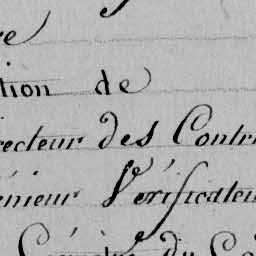 re
tion de
recteur des Contri
énieur Vérificateu
du Ca